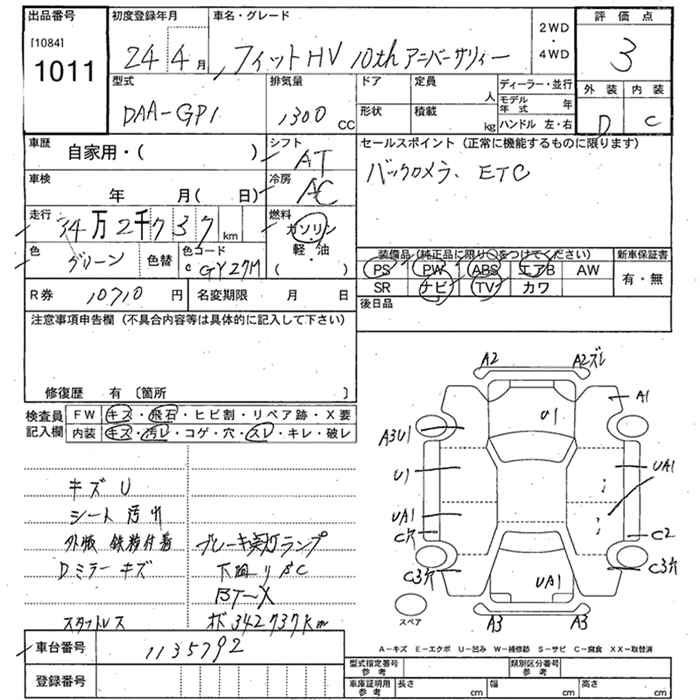 出品番号
[1084]
1011
初度登録年月
24年4月
車名・グレード
フィットHV 10th アニバーサリィー
2WD
・
4WD
評価点
3
外装 内装
D C
型式
DAA-GP1
排気量
1300 CC
ドア
定員
人
形状
積載
kg
ディーラー・並行
モデル年式 年
ハンドル 左・右
車歴
自家用・( )
シフト
AT
車検
年 月( 日)
冷房
AC
走行
34万2千737km
燃料
ガソリン
軽・油
( )
色
グリーン
色替
色コード
GY27M
R券 10710円
名変期限 月 日
セールスポイント(正常に機能するものに限ります)
バックカメラ、ETC
装備品(純正品に限り○をつけてください)
新車保証書
PS PW ABS エアB AW
有・無
SR ナビ TV カワ
後日品
注意事項申告欄(不具合内容等は具体的に記入して下さい)
修復歴 有〔箇所 〕
検査員記入欄
FW キズ・飛石・ヒビ割・リペア跡・X要
内装 キズ・汚レ・コゲ・穴・スレ・キレ・破レ
キズU
シート汚れ
外板 鉄粉付着
Dミラーキズ
スタットレス
ブレーキ警灯ランプ
下回りSC
BT-X
メ 342737km
A2
A2ズレ
A1
U1
A3U1
U1
UA1
UA1
C穴
C2
C3穴
C3穴
UA1
A3
A3
スペア
A-キズ E-エクボ U-凹み W-補修跡 S-サビ C-腐食 XX-取替済
車台番号
1135792
登録番号
型式指定番号参考
類別区分番号参考
車庫証明用参考
長さ cm
幅 cm
高さ cm